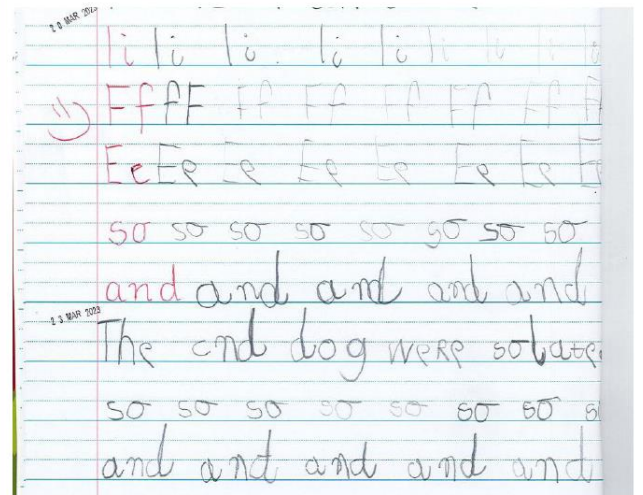 20 MAR 2023
li li li. li li li li li l
Ff fF Ff Ff Ff Ff Ff F
Ee Ee Ee Ee Ee Ee Ee E
so so so so so so so so
and and and and and
23 MAR 2023
The cnd dog were so
so so so so so so so s
and and and and and